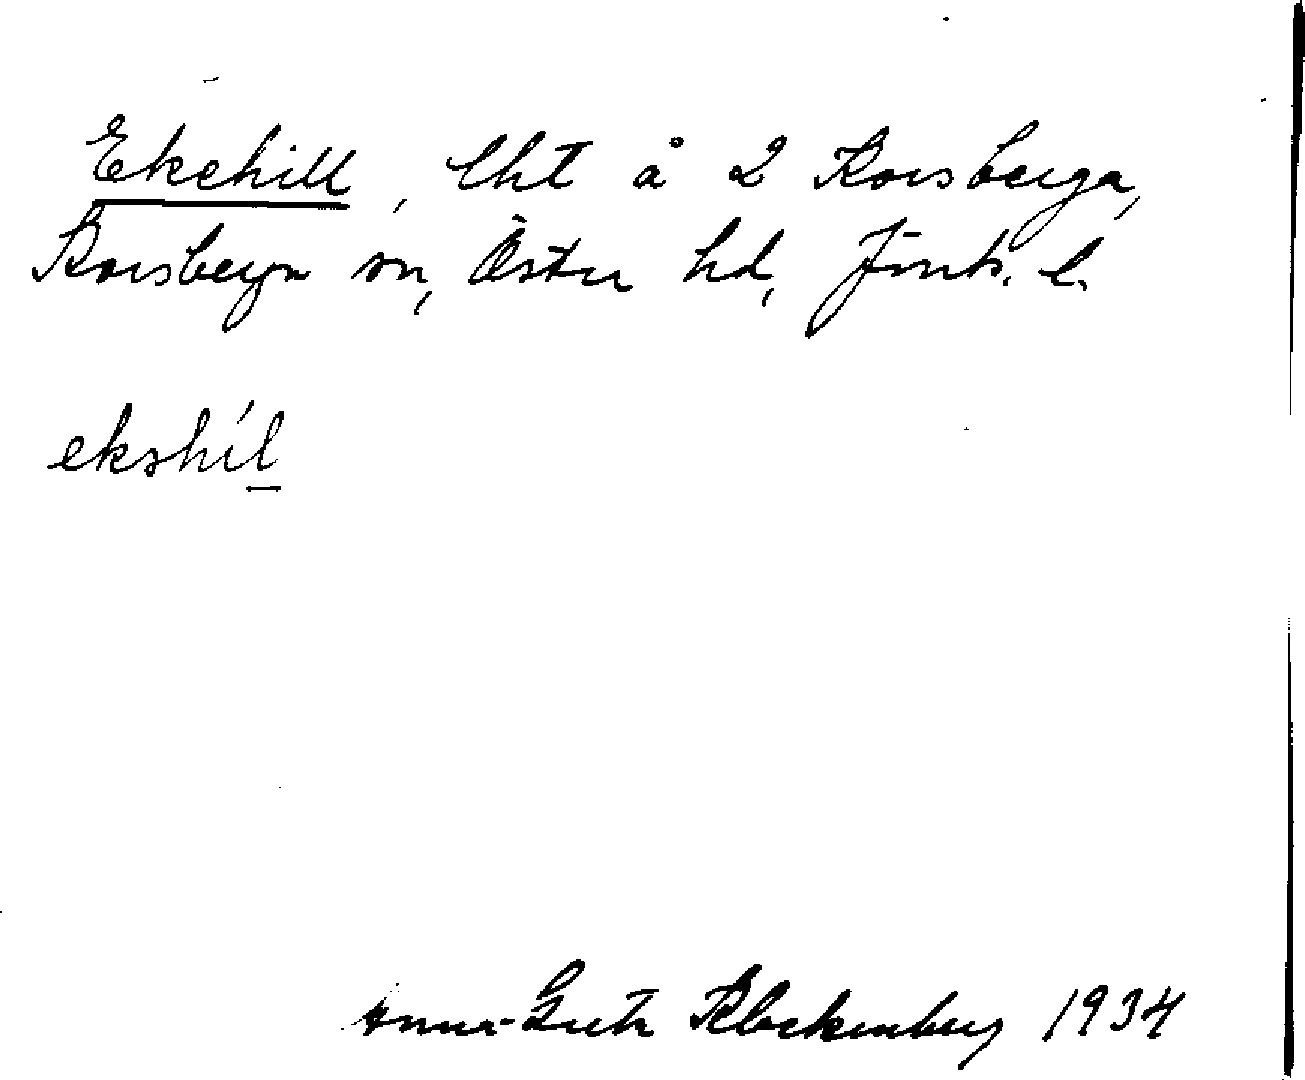 Ekehill, lht å 2 Korsberga,
Korsberga sn, Östra hd, Jönk. l.
ekəhíl
Anna-Greta Klockenberg 1934